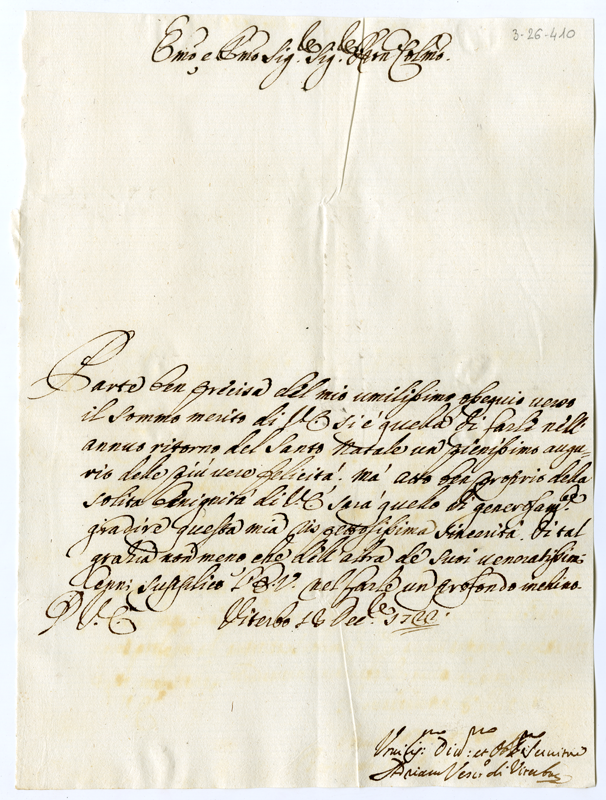 3-26-410
Emo, e Rmo Sig.re Sig.re Prñ Colmo.
Parte ben precisa del mio umilissimo ossequio verso
il sommo merito di V.E. si é quella di farle nell'
annuo ritorno del Santo Natale un pienissimo augu-
rio delle piú vere felicitá. má atto ben proprio della
solita benignitá di V.E. sará quello di generosam.te
gradire questa mia sincerità. Di tal
grazia non meno che dell'altra de' suoi veneratissimi
cenni supplico V.E. nel farle un profondo inchino.
D V. E. Viterbo 18 Dec.re 1722.
Umiliss.mo Div.mo et Obb.mo Servitore
Adriano Vesc.o di Viterbo